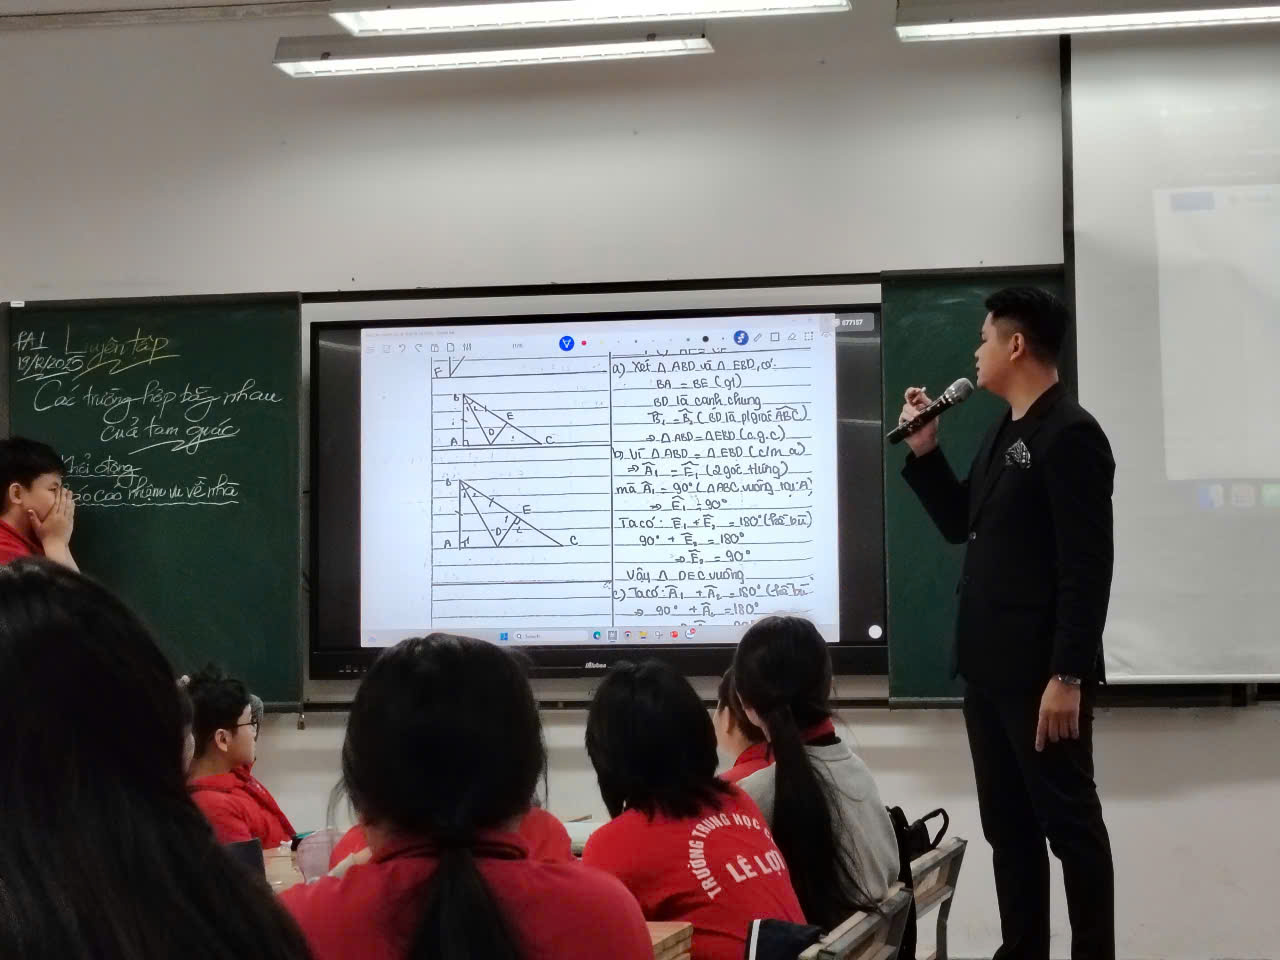 PA1 Luyện tập
19/12/2025
Các trường hợp bằng nhau
của tam giác
Khởi động
Báo cáo nhiệm vụ về nhà
F
B
1 2
E
D
A
C
B
1 2
E
1
2
D
A
1
C
a) Xét Δ ABD và Δ EBD, có:
BA = BE (gt)
BD là cạnh chung
B̂₁ = B̂₂ (BD là p/giác ABC)
⇒ Δ ABD = Δ EBD (c.g.c)
b) Vì Δ ABD = Δ EBD (c/m a)
⇒ Â₁ = Ê₁ (2 góc t/ứng)
mà Â₁ = 90° (Δ ABC vuông tại A)
⇒ Ê₁ = 90°
Ta có: Ê₁ + Ê₂ = 180° (kề bù)
90° + Ê₂ = 180°
⇒ Ê₂ = 90°
Vậy Δ DEC vuông
c) Ta có: Â₁ + Â₂ = 180° (kề bù
⇒ 90° + Â₂ = 180°
Search
677157
TRƯỜNG TRUNG HỌC
LÊ LỢI